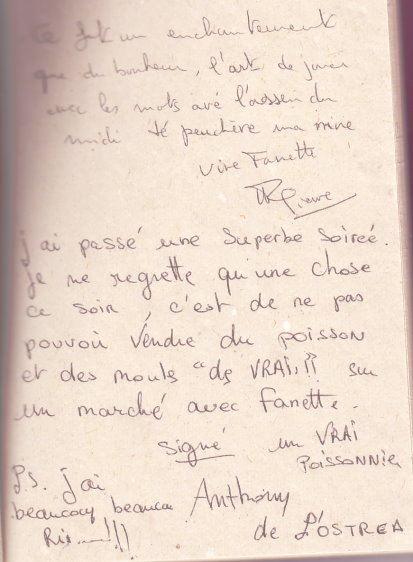 Ce fut un enchantement
que du bonheur, l'art de jouer
avec les mots avé l'assen du
midi té peuchère ma mine
vive Fanette
Pierre
j'ai passé une superbe soireé.
je ne regrette qu'une chose
ce soir, c'est de ne pas
pouvoir vendre du poisson
et des mouls "de VRAI,!!" sur
un marché avec fanette.
signé un VRAI
POISSONNIER
P.S. j'ai
beaucoup beaucou Anthony
Rir......!!! de L'OSTREA